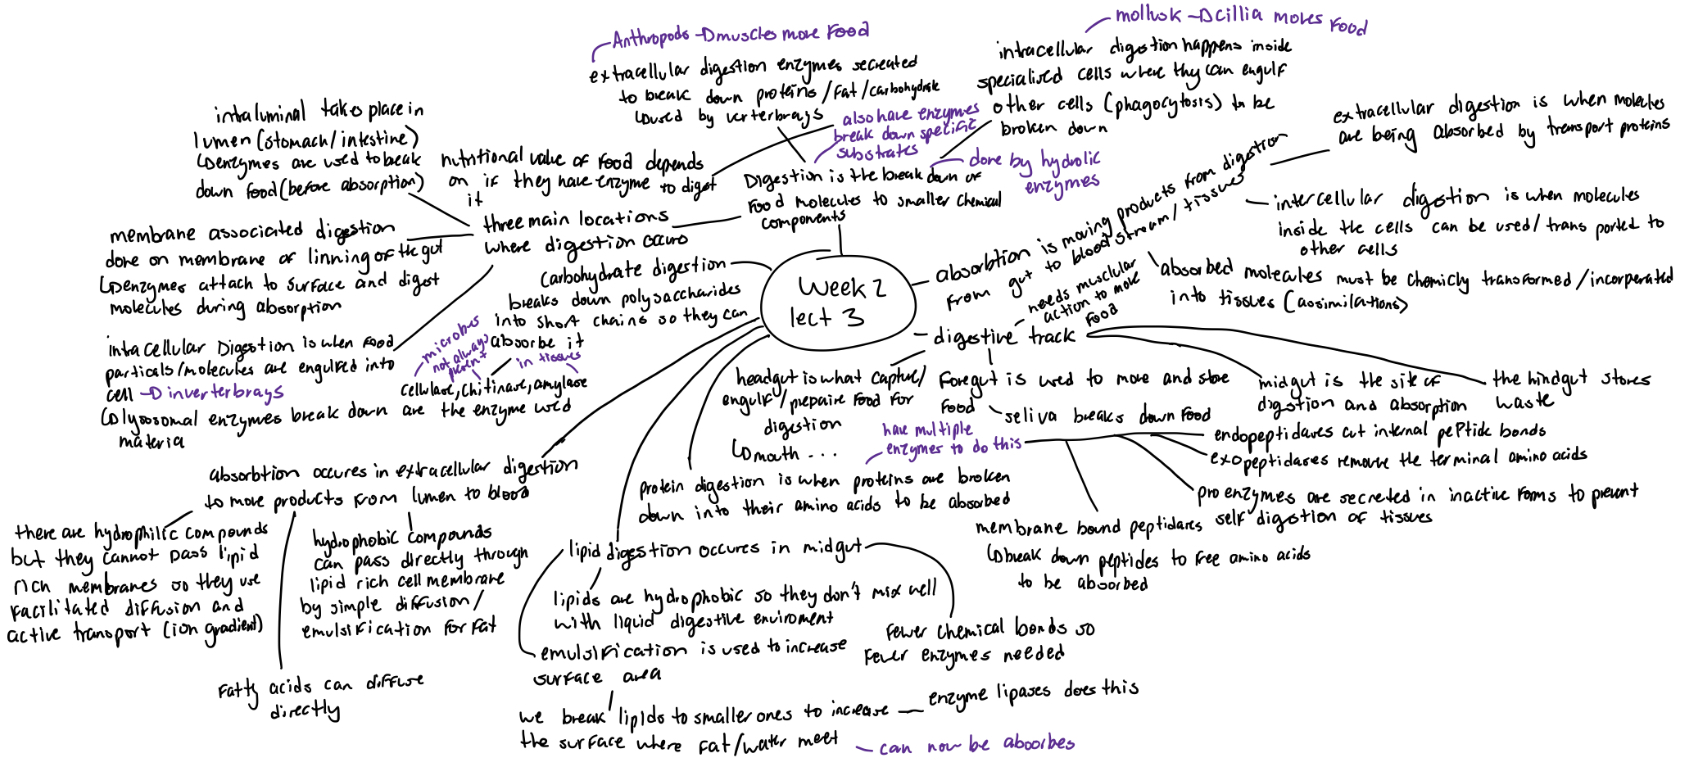 Week 2
lect 3
Digestion is the break down of
food molecules to smaller chemical
components
done by hydrolic
enzymes
also have enzymes
break down specific
substrates
Anthropods → muscles move food
extracellular digestion enzymes secreated
to break down proteins/fat/carbohydrate
↳ used by verterbrays
mollusk → cillia moves food
intracellular digestion happens inside
specialised cells where they can engulf
other cells (phagocytosis) to be
broken down
nutritional value of food depends
on if they have enzyme to digest
it
three main locations
where digestion occurs
intraluminal takes place in
lumen (stomach/intestine)
↳ enzymes are used to beak
down food (before absorption)
membrane associated digestion
done on membrane of linning of the gut
↳ enzymes attach to surface and digest
molecules during absorption
intracellular Digestion is when food
particals/molecules are engulfed into
cell → inverterbrays
↳ lysosomal enzymes break down
materia
Carbohydrate digestion
breaks down polysaccharides
into short chains so they can
absorbe it
microbes
not always
present
in tissues
cellulase, chitinase, amylase
are the enzyme used
absorbtion occures in extracellular digestion
to move products from lumen to blood
there are hydrophilic compounds
but they cannot pass lipid
rich membranes so they use
facilitated diffusion and
active transport (ion gradient)
fatty acids can diffuse
directly
hydrophobic compounds
can pass directly through
lipid rich cell membrane
by simple diffusion/
emulsification for fat
lipid digestion occures in midgut
lipids are hydrophobic so they don't mix well
with liquid digestive enviroment
fewer chemical bonds so
fewer enzymes needed
emulsification is used to increase
surface area
we break lipids to smaller ones to increase
the surface where fat/water meet
enzyme lipases does this
can now be absorbes
protein digestion is when proteins are broken
down into their amino acids to be absorbed
have multiple
enzymes to do this
endopeptidases cut internal peptide bonds
exopeptidases remove the terminal amino acids
proenzymes are secreted in inactive forms to prevent
self digestion of tissues
membrane bound peptidases
↳ break down peptides to free amino acids
to be absorbed
digestive track
needs musclular
action to move
food
headgut is what capture/
engulf/prepaire food for
digestion
↳ mouth ...
Foregut is used to move and store
food
seliva breaks down food
midgut is the site of
digstion and absorption
the hindgut stores
waste
absorbtion is moving products from digestion
from gut to bloodstream/tissues
extracellular digestion is when molecules
are being absorbed by transport proteins
intercellular digestion is when molecules
inside the cells can be used/transported to
other cells
absorbed molecules must be chemicly transformed/incorperated
into tissues (assimilations)